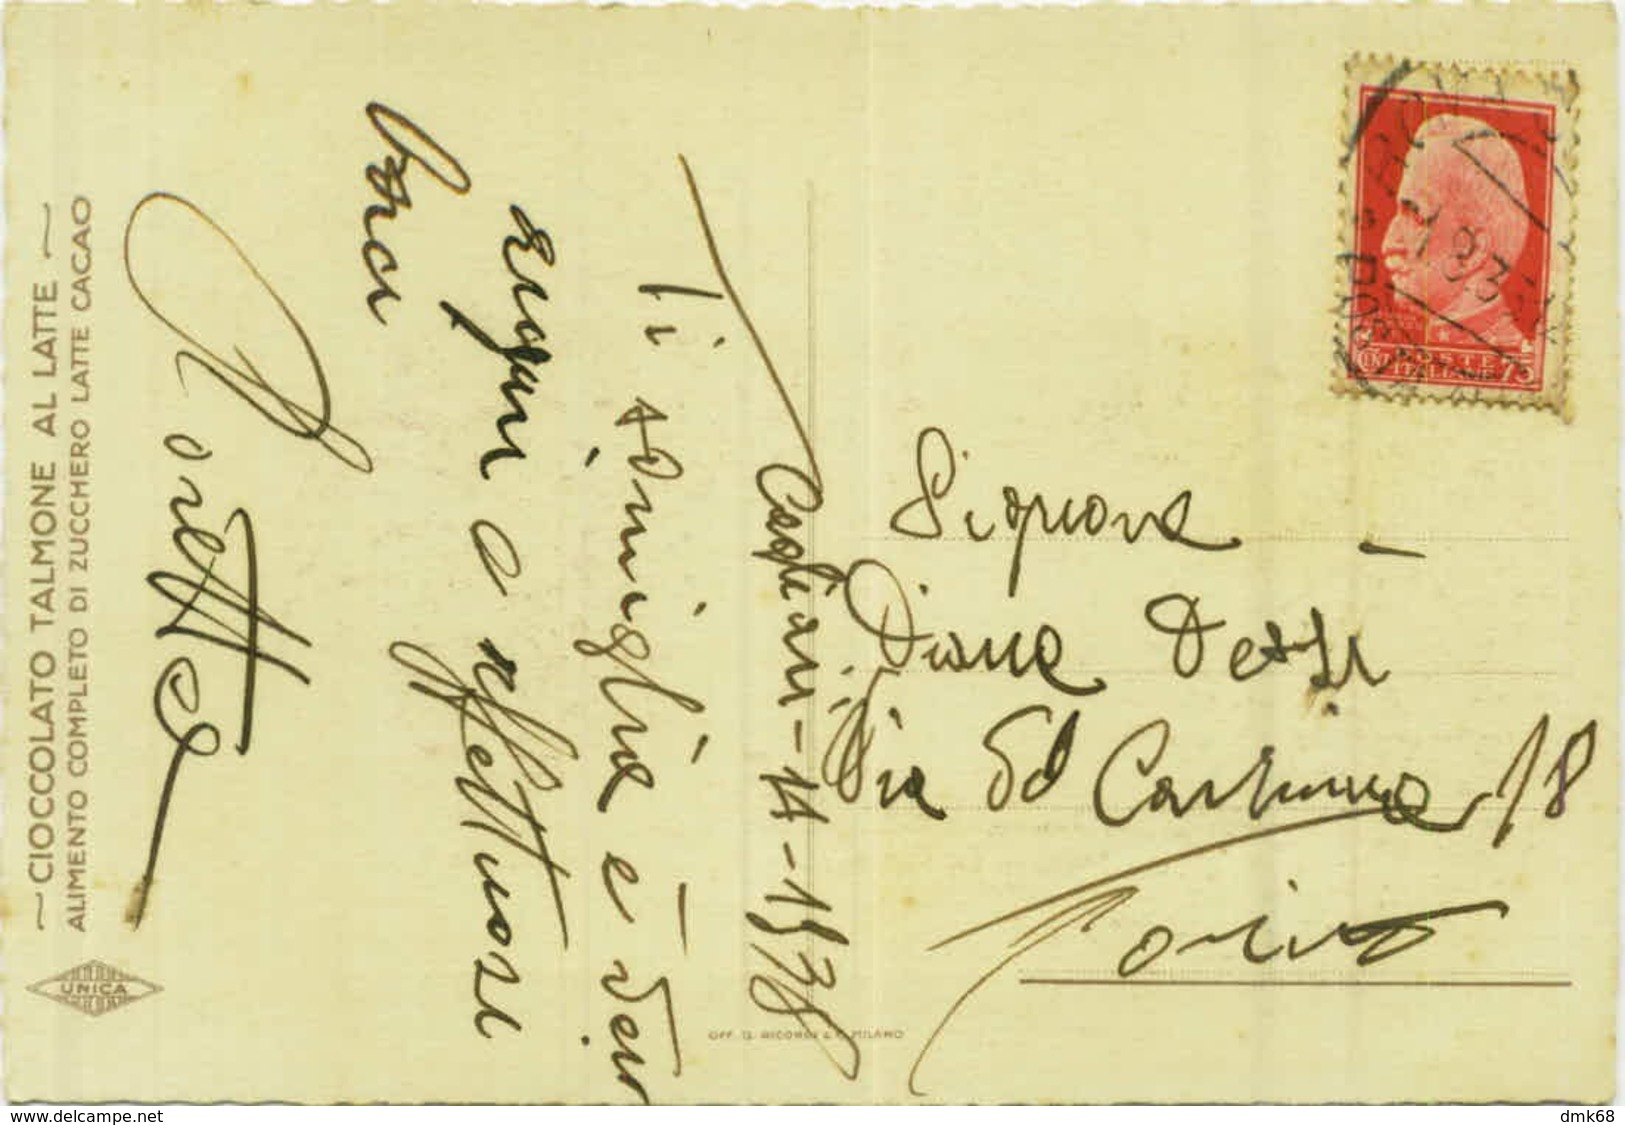 CIOCCOLATO TALMONE AL LATTE
ALIMENTO COMPLETO DI ZUCCHERO LATTE CACAO
UNICA
Cagliari - 11 - 1938
Ti somiglia è vero
auguri e affettuosi
baci
Doretta
OFF. G. RICORDI & C. MILANO
POSTE
ITALIANE
CENT 75
Signora
Diana Dessì
Via Ed 18
Torino
delcampe.net
dmk68